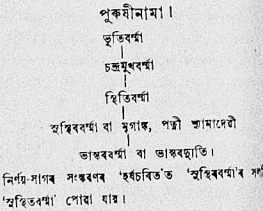 পুৰুষীনামা।
ভূতিবৰ্ম্মা
চন্দ্ৰমুখবৰ্ম্মা
স্থিতিবৰ্ম্মা
সুস্থিৰবৰ্ম্মা বা মৃগাঙ্ক, পত্নী শ্যামাদেৱী
ভাস্কৰবৰ্ম্মা বা ভাস্কৰদ্যুতি।
নিৰ্ণয়-সাগৰ সংস্কৰণৰ 'হৰ্ষচৰিত'ত 'সুস্থিৰবৰ্ম্মা'ৰ
'সুস্থিতবৰ্ম্মা' পোৱা যায়।